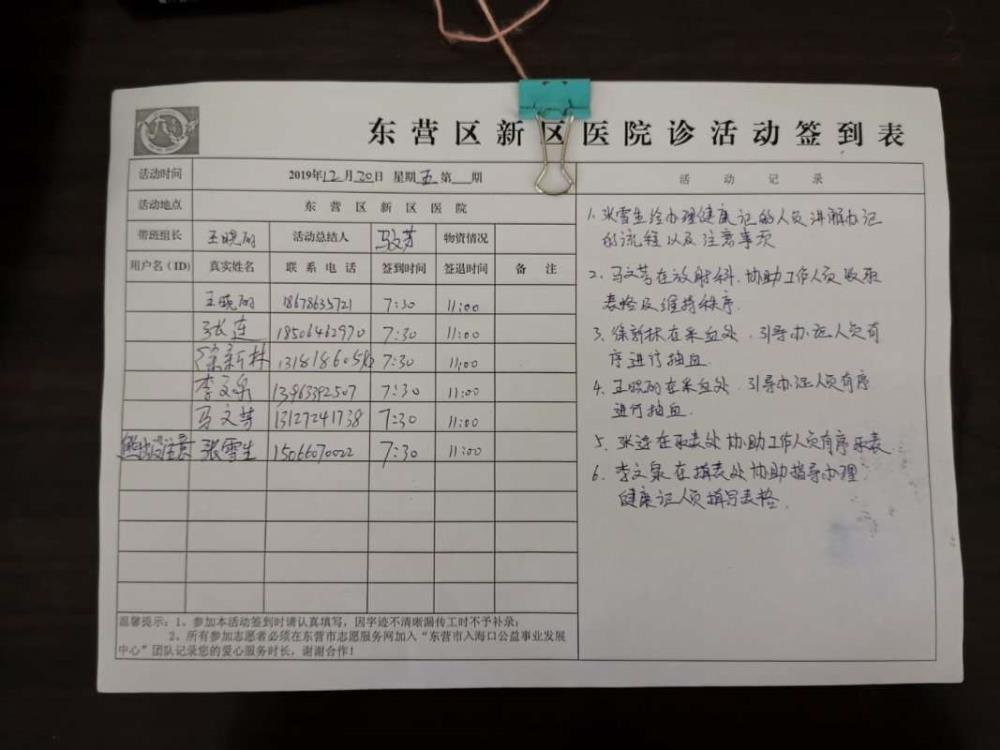 东营区新区医院诊活动签到表
活动时间 2019年12月20日 星期五 第 期
活动地点 东营区新区医院
带班组长 王晓丽 活动总结人 马文芳 物资情况
用户名(ID) 真实姓名 联系电话 签到时间 签退时间 备注
王晓丽 18678635721 7:30 11:00
张连 18506462970 7:30 11:00
徐新林 7:30 11:00
李文泉 13963392507 7:30 11:00
马文芳 13127241738 7:30 11:00
张雪生 15066070022 7:30 11:00
温馨提示:1、参加本活动签到时请认真填写,因字迹不清晰漏传工时不予补录;
2、所有参加志愿者必须在东营市志愿服务网加入“东营市入海口公益事业发展
中心”团队记录您的爱心服务时长,谢谢合作!
活动记录
1. 张雪生给办理健康证的人员讲解办证
的流程以及注意事项
2. 马文芳在放射科,协助工作人员收取
表格及维持秩序.
3. 徐新林在采血处,引导办证人员有
序进行抽血.
4. 王晓丽在采血处,引导办证人员有序
进行抽血.
5. 张连在取表处协助工作人员有序取表.
6. 李文泉在填表处协助指导办理
健康证人员填写表格.